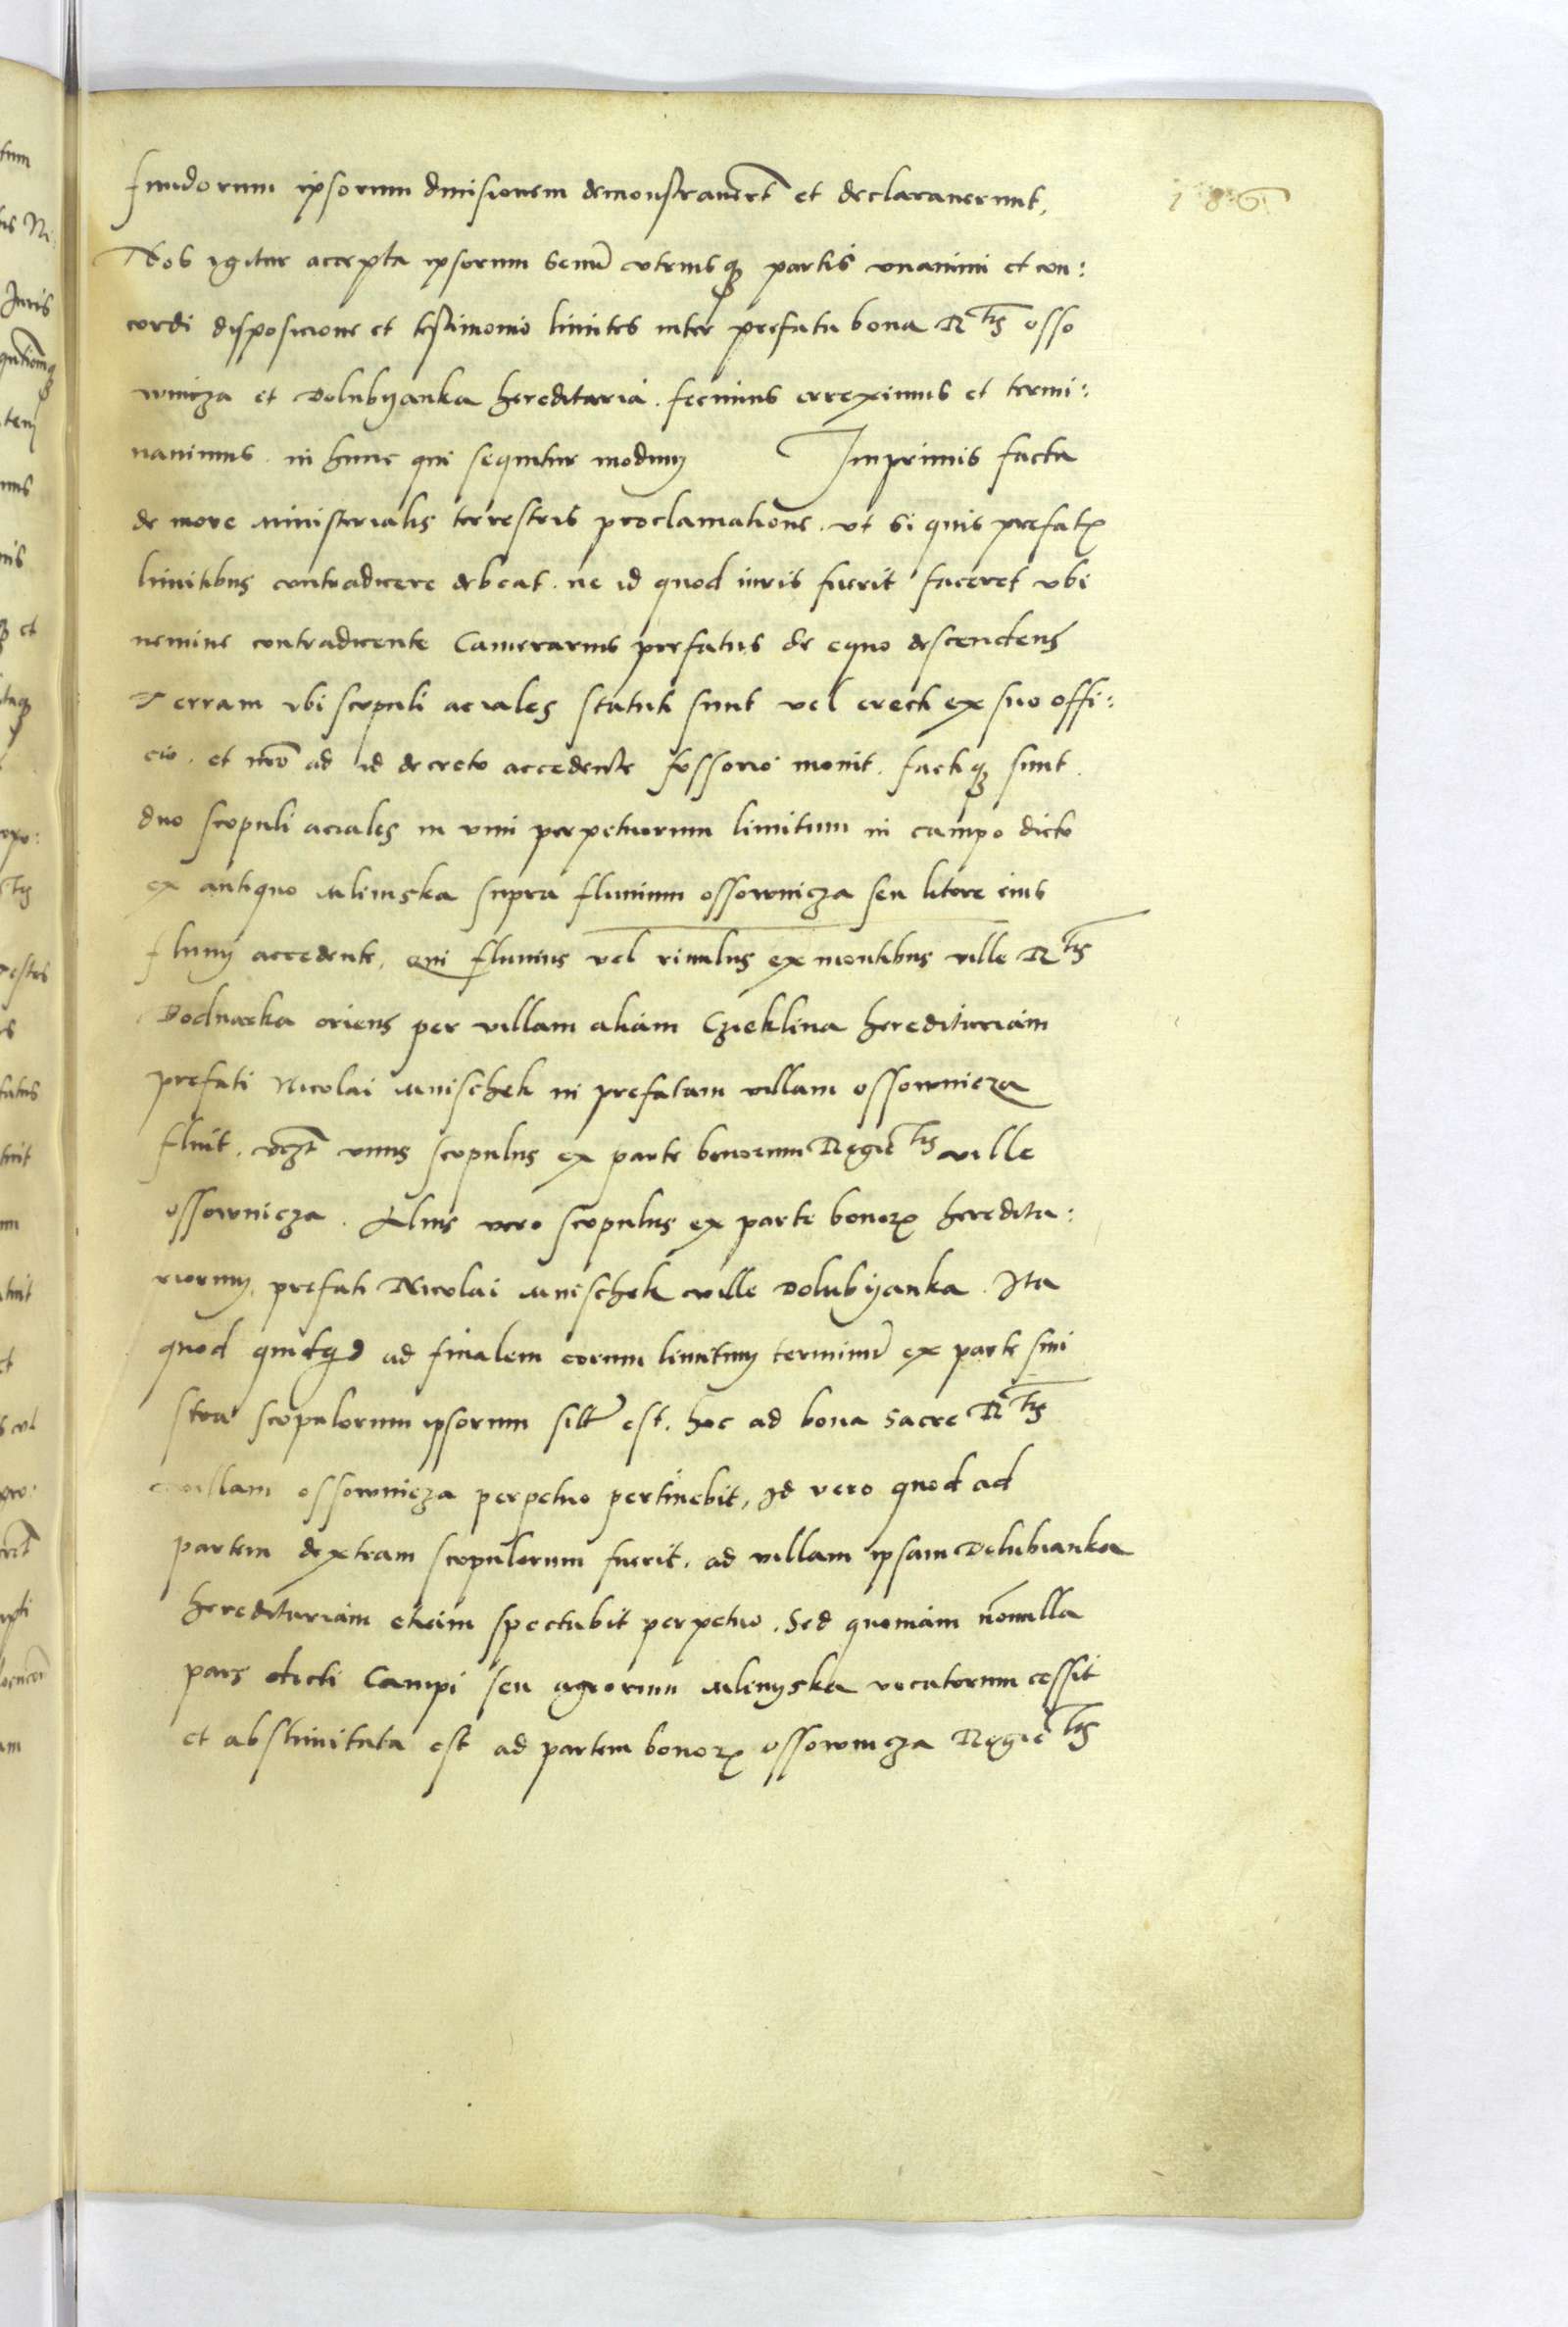 186
fundorum ipsorum divisionem demonstraverūt et declaraverunt,
Nos igitur accepta ipsorum senū utriusqȝ partis unanimi et con:
cordi disposicione et testimonio limites inter prefata bona R^tis osso
wnicza et Dolubyanka hereditaria. fecimus erreximus et termi:
navimus. in hunc qui sequitur modum Imprimis facta
de more ministerialis terrestris proclamatione. ut si quis prefatꝝ
limitibus contradicere debeat. ne id quod iuris fuerit faceret ubi
nemine contradicente Camerarius prefatus de equo descendens
Terram ubi scopuli aciales statuti sunt vel erecti ex suo offi:
cio. et nr̄o ad id decreto accedente fossorio movit. factiqȝ sunt.
duo scopuli aciales in vim perpetuorum limitum in campo dicto
ex antiquo Mlinska supra fluvium ossownicza seu litore eius
fluvij accedente, qui fluvius vel rivulus ex montibus ville R^tis
Bodnarka oriens per villam aliam Czieklina hereditariam
prefati Nicolai Mnischek in prefatam villam ossownicza
fluit. vcz̄t unus scopulus ex parte bonorum Regie^tis ville
ossownicza. Alius vero scopulus ex parte bonorꝝ heredita:
riorum, prefati Nicolai Mnischek ville Dolubyanka. Ita
quod quicqd ad finalem eorum limitum terminū ex parte sini
stra scopulorum ipsorum sitū est. hoc ad bona Sacre R^tis
villam ossownicza perpetuo pertinebit, Id vero quod ad
partem dextram scopulorum fuerit. ad villam ipsam Dolubianka
hereditariam etiam spectabit perpetuo. Sed quoniam nōnulla
pars dicti Campi seu agrorum Mlinyska vocatorum cessit
et abslimitata est ad partem bonorꝝ ossownicza Regie^tis